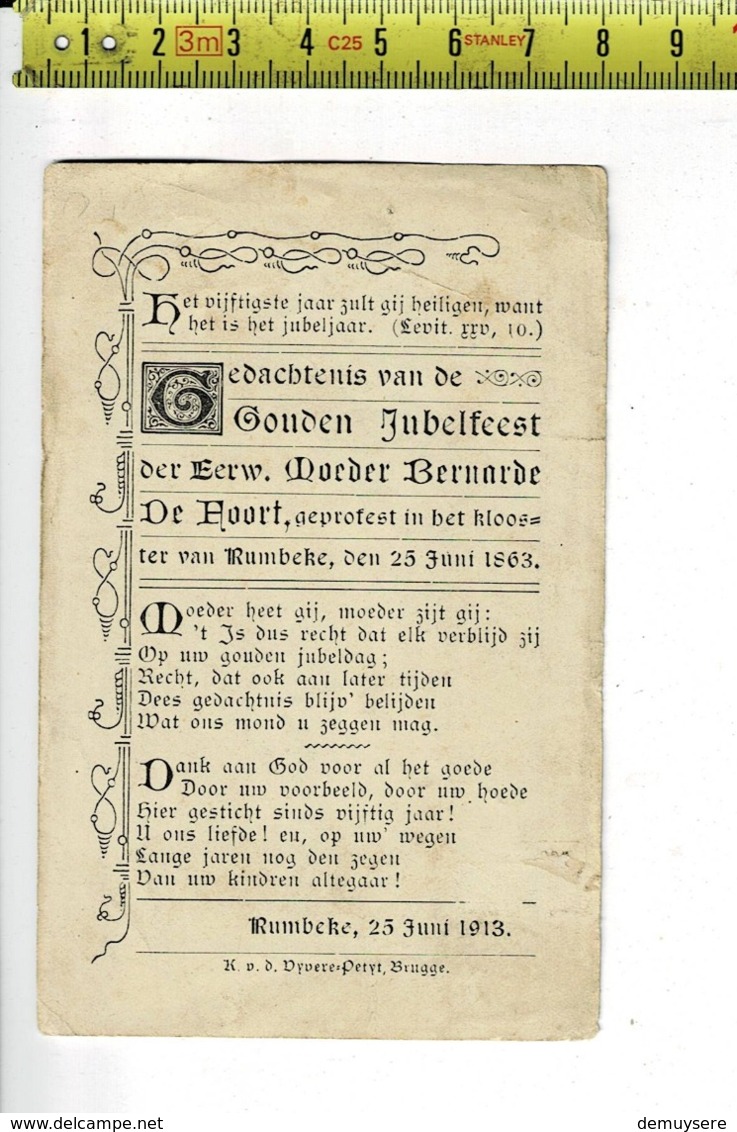 1 2 3m 3 4 C25 5 6 STANLEY 7 8 9
Het vijftigste jaar zult gij heiligen, want
het is het jubeljaar. (Levit. xxv, 10.)
Gedachtenis van de
Gouden Jubelfeest
der Eerw. Moeder Bernarde
De Hoort, geprofest in het kloos=
ter van Rumbeke, den 25 Juni 1863.
Moeder heet gij, moeder zijt gij:
't Is dus recht dat elk verblijd zij
Op uw gouden jubeldag;
Recht, dat ook aan later tijden
Dees gedachtnis blijv' belijden
Wat ons mond u zeggen mag.
Dank aan God voor al het goede
Door uw voorbeeld, door uw hoede
Hier gesticht sinds vijftig jaar!
U ons liefde! en, op uw' wegen
Lange jaren nog den zegen
Van uw kindren altegaar!
Rumbeke, 25 Juni 1913.
K. v. d. Vyvere=Petyt, Brugge.
demuysere